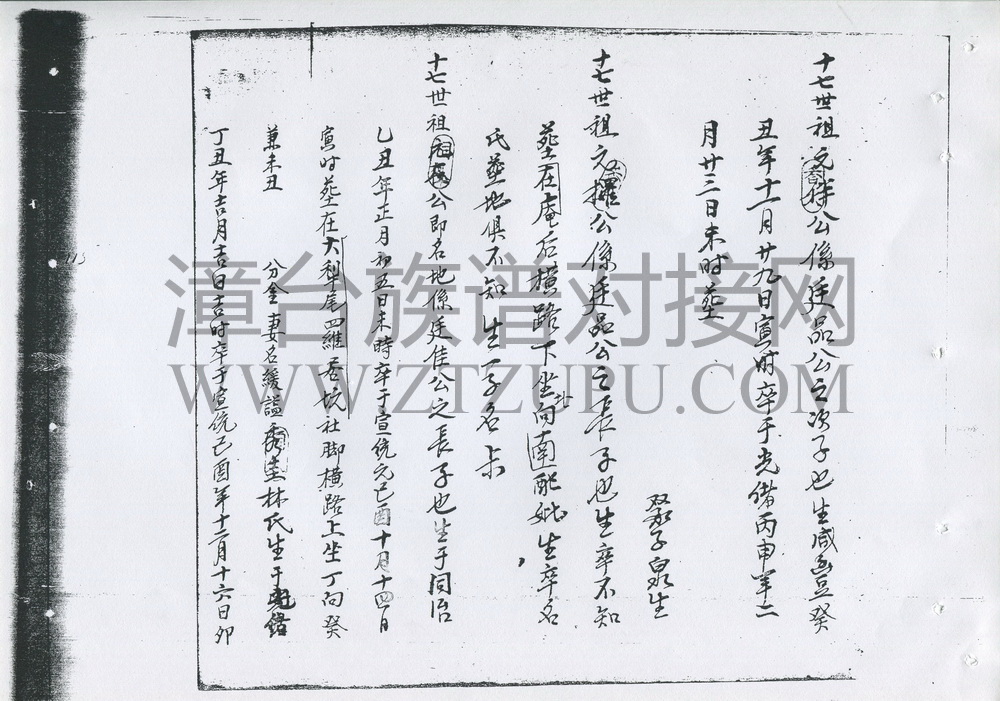 十七世祖文公係廷品公之次子也生咸豐癸
丑年十一月廿九日寅时卒于光绪丙申年二
月廿三日未时葬
双承子泉生
十七世祖文公係廷品公之長子也生卒不知
葬在庵后横路下坐北向南配妣生卒名
氏葬地俱不知生一子名
十七世祖公即名地係廷佳公之長子也生于同治
乙丑年正月初五日未時卒于宣統元己酉十月十四日
寅时葬在大科尾四羅吞坑社脚横路上坐丁向癸
兼未丑 分金妻名緩謚林氏生于光绪
丁丑年吉月吉日吉时卒于宣统己酉年十二月十六日卯
漳台族谱对接网
WWW.ZTZUPU.COM
113